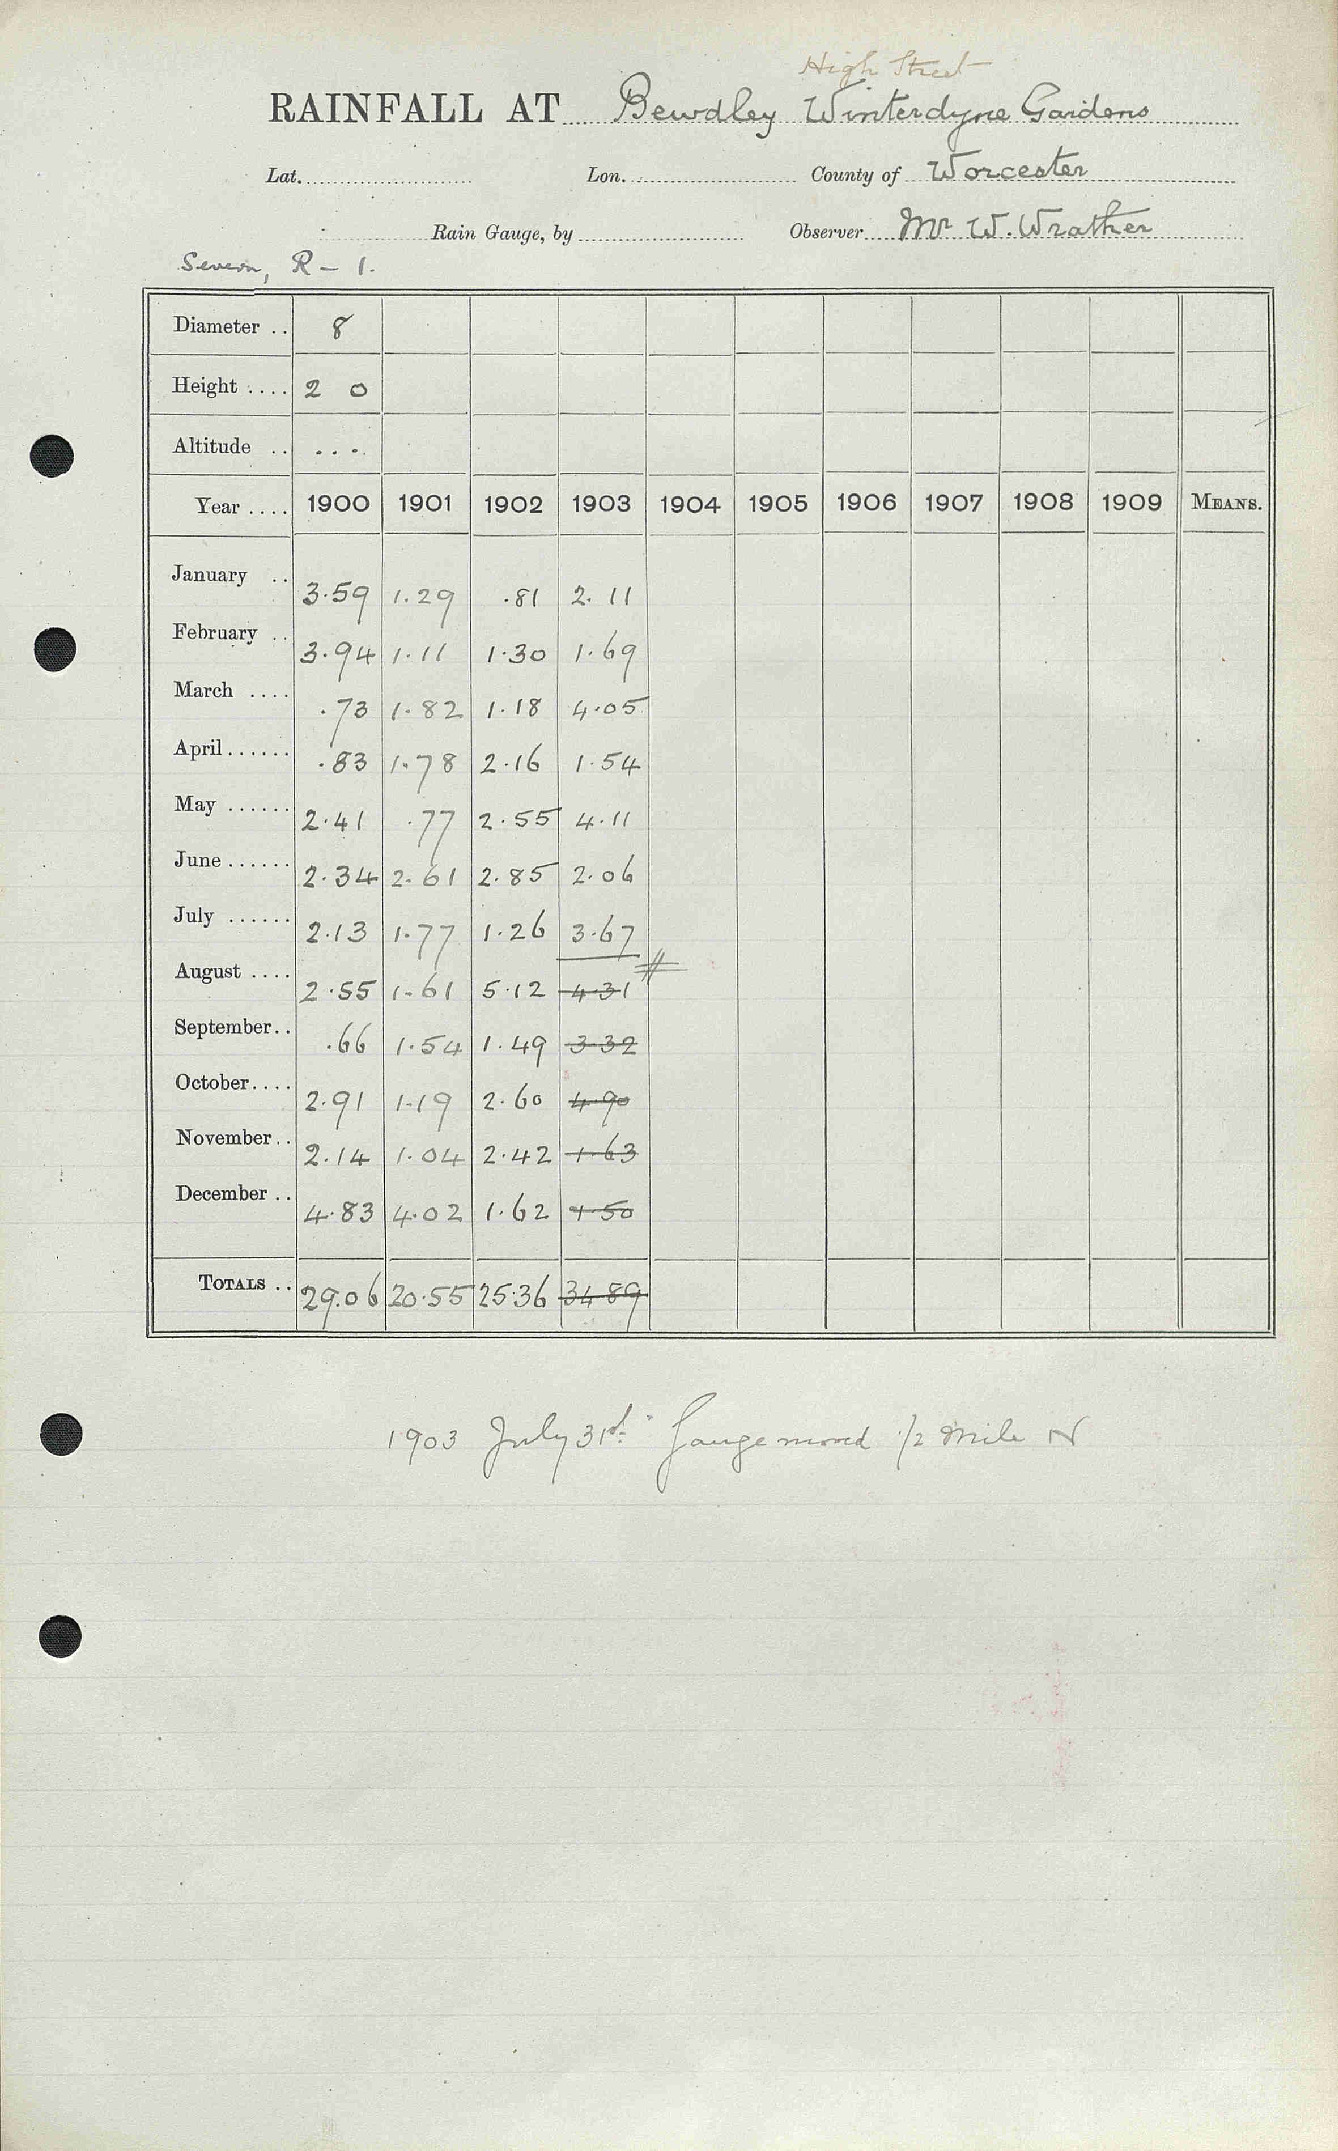 High Street
RAINFALL AT Bewdley Winterdyne Gardens
Lat. Lon. County of Worcester
Rain Gauge, by Observer Mr W. Wrather
Severn, R - 1.
Diameter .. 8
Height .... 2 0
Altitude .. ...
Year .... 1900 1901 1902 1903 1904 1905 1906 1907 1908 1909 MEANS.
January .. 3.59 1.29 .81 2.11
February .. 3.94 1.11 1.30 1.69
March .... .73 1.82 1.18 4.05
April...... .83 1.78 2.16 1.54
May ...... 2.41 .77 2.55 4.11
June ...... 2.34 2.61 2.85 2.06
July ...... 2.13 1.77 1.26 3.67
August .... 2.55 1.61 5.12 4.31 #
September.. .66 1.54 1.49 3.32
October.... 2.91 1.19 2.60 4.90
November.. 2.14 1.04 2.42 1.63
December .. 4.83 4.02 1.62 1.50
TOTALS .. 29.06 20.55 25.36 34.89
1903 July 31st. Gauge moved 1/2 mile N